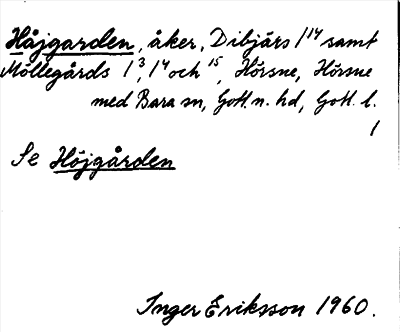 Håjgarden, åker, Dibjärs 1¹⁴ samt
Möllegårds 1³, 1⁴ och ¹⁵, Hörsne, Hörsne
med Bara sn, Gotl. n. hd, Gotl. l.
1
Se Höjgården
Inger Eriksson 1960.